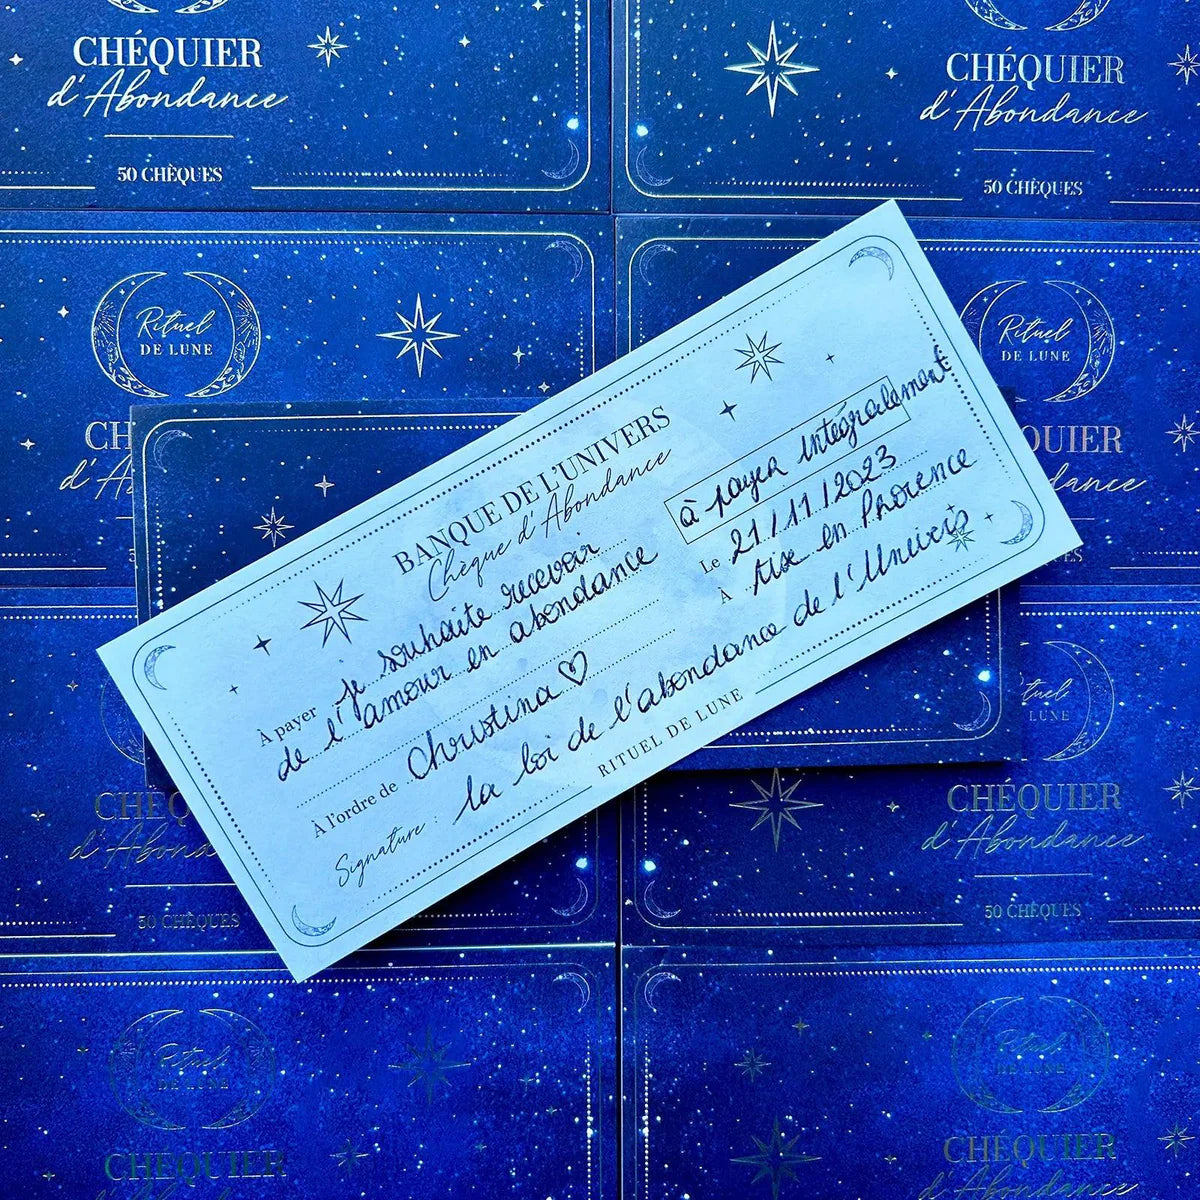 CHÉQUIER
d'Abondance
50 CHÈQUES
CHÉQUIER
d'Abondance
50 CHÈQUES
Rituel
DE LUNE
CH
d'A
Rituel
DE LUNE
QUIER
ndance
BANQUE DE L'UNIVERS
Chèque d'Abondance
à payer intégralement
Le 21/11/2023
À Aix en Provence
À payer je souhaite recevoir
de l'amour en abondance
À l'ordre de Christina ♡
Signature : la loi de l'abondance de l'Univers
RITUEL DE LUNE
Rituel
LUNE
CHÉQU
d'Abonda
50 CHÈQUES
CHÉQUIER
d'Abondance
50 CHÈQUES
Rituel
DE LUNE
CHÉQUIER
d'Abondance
Rituel
DE LUNE
CHÉQUIER
d'Abondance